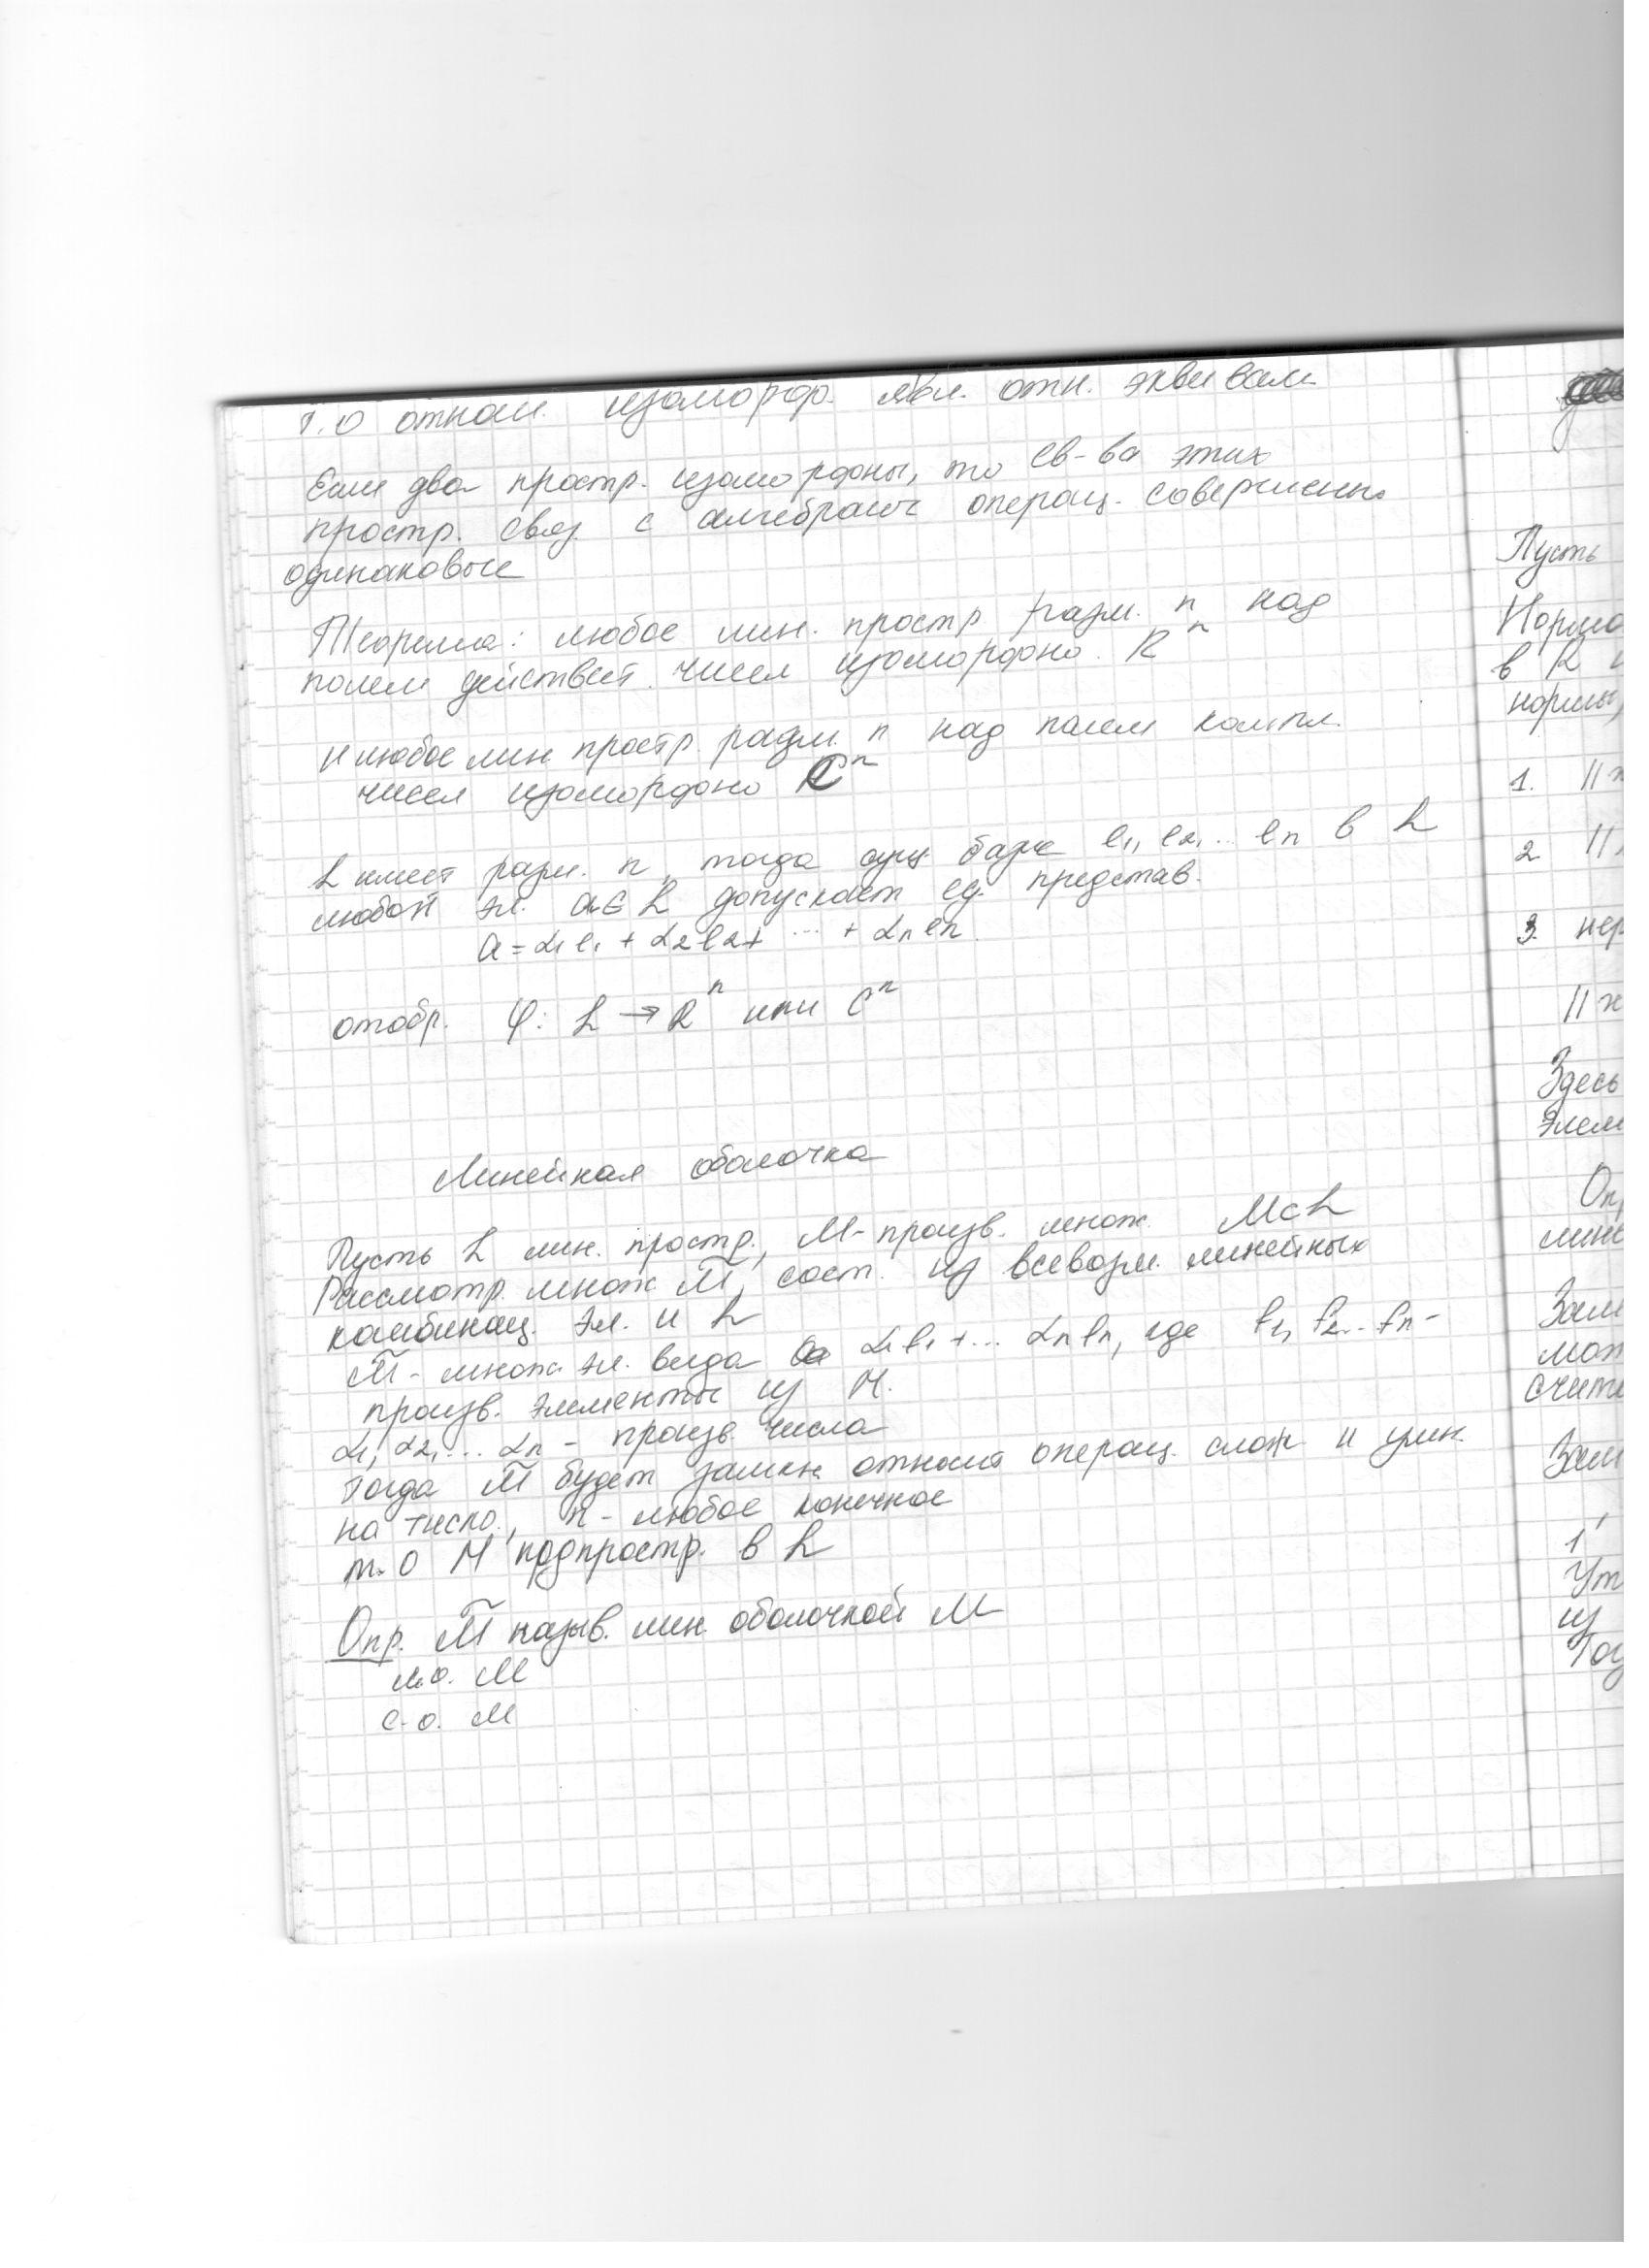 Т.О отнош. изоморф. явл. отн. эквивал.
Если два простр. изоморфны, то св-ва этих
простр. связ. с алгебраич операц. совершенно
одинаковые
Теорема: любое лин. простр разм. n над
полем действит. чисел изоморфно R^n
и любое лин простр. разм. n над полем компл.
чисел изоморфно C^n
L имеет разм. n, тогда сущ базис e1, e2, ... en в L
любой эл. a∈L допускает ед. представ.
a = α1 e1 + α2 e2 + ... + αn en
отобр. φ: L → R^n или C^n
Линейная оболочка
Пусть L лин. простр., M - произв. множ. M⊂L
Рассмотр. множ M̅, сост. из всевозм. линейных
комбинац. эл. и L
M̅ - множ эл. вида α1 l1 + ... αn ln, где l1, l2... ln -
произв. элементы из M.
α1, α2, ... αn - произв числа
Тогда M̅ будет замкн относит операц. слож и умн.
на число, n - любое конечное
т.О M подпростр. в L
Опр. M̅ назыв. лин. оболочкой M
л.о. M
с.о. M
Пусть
в R
нормы,
1. ||x
2 ||
3. нер
||x
Здесь
элем
Оп
Зам
счита
Зам
1'
из